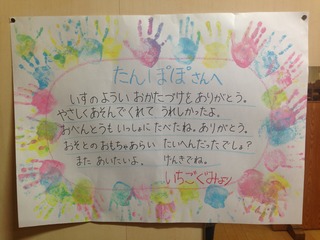 たんぽぽさんへ
いすのようい おかたづけを ありがとう。
やさしくあそんでくれて うれしかったよ。
おべんとうも いっしょに たべたね。ありがとう。
おそとの おもちゃあらい たいへんだったでしょ？
また あいたいよ。 げんきでね。
いちごぐみより